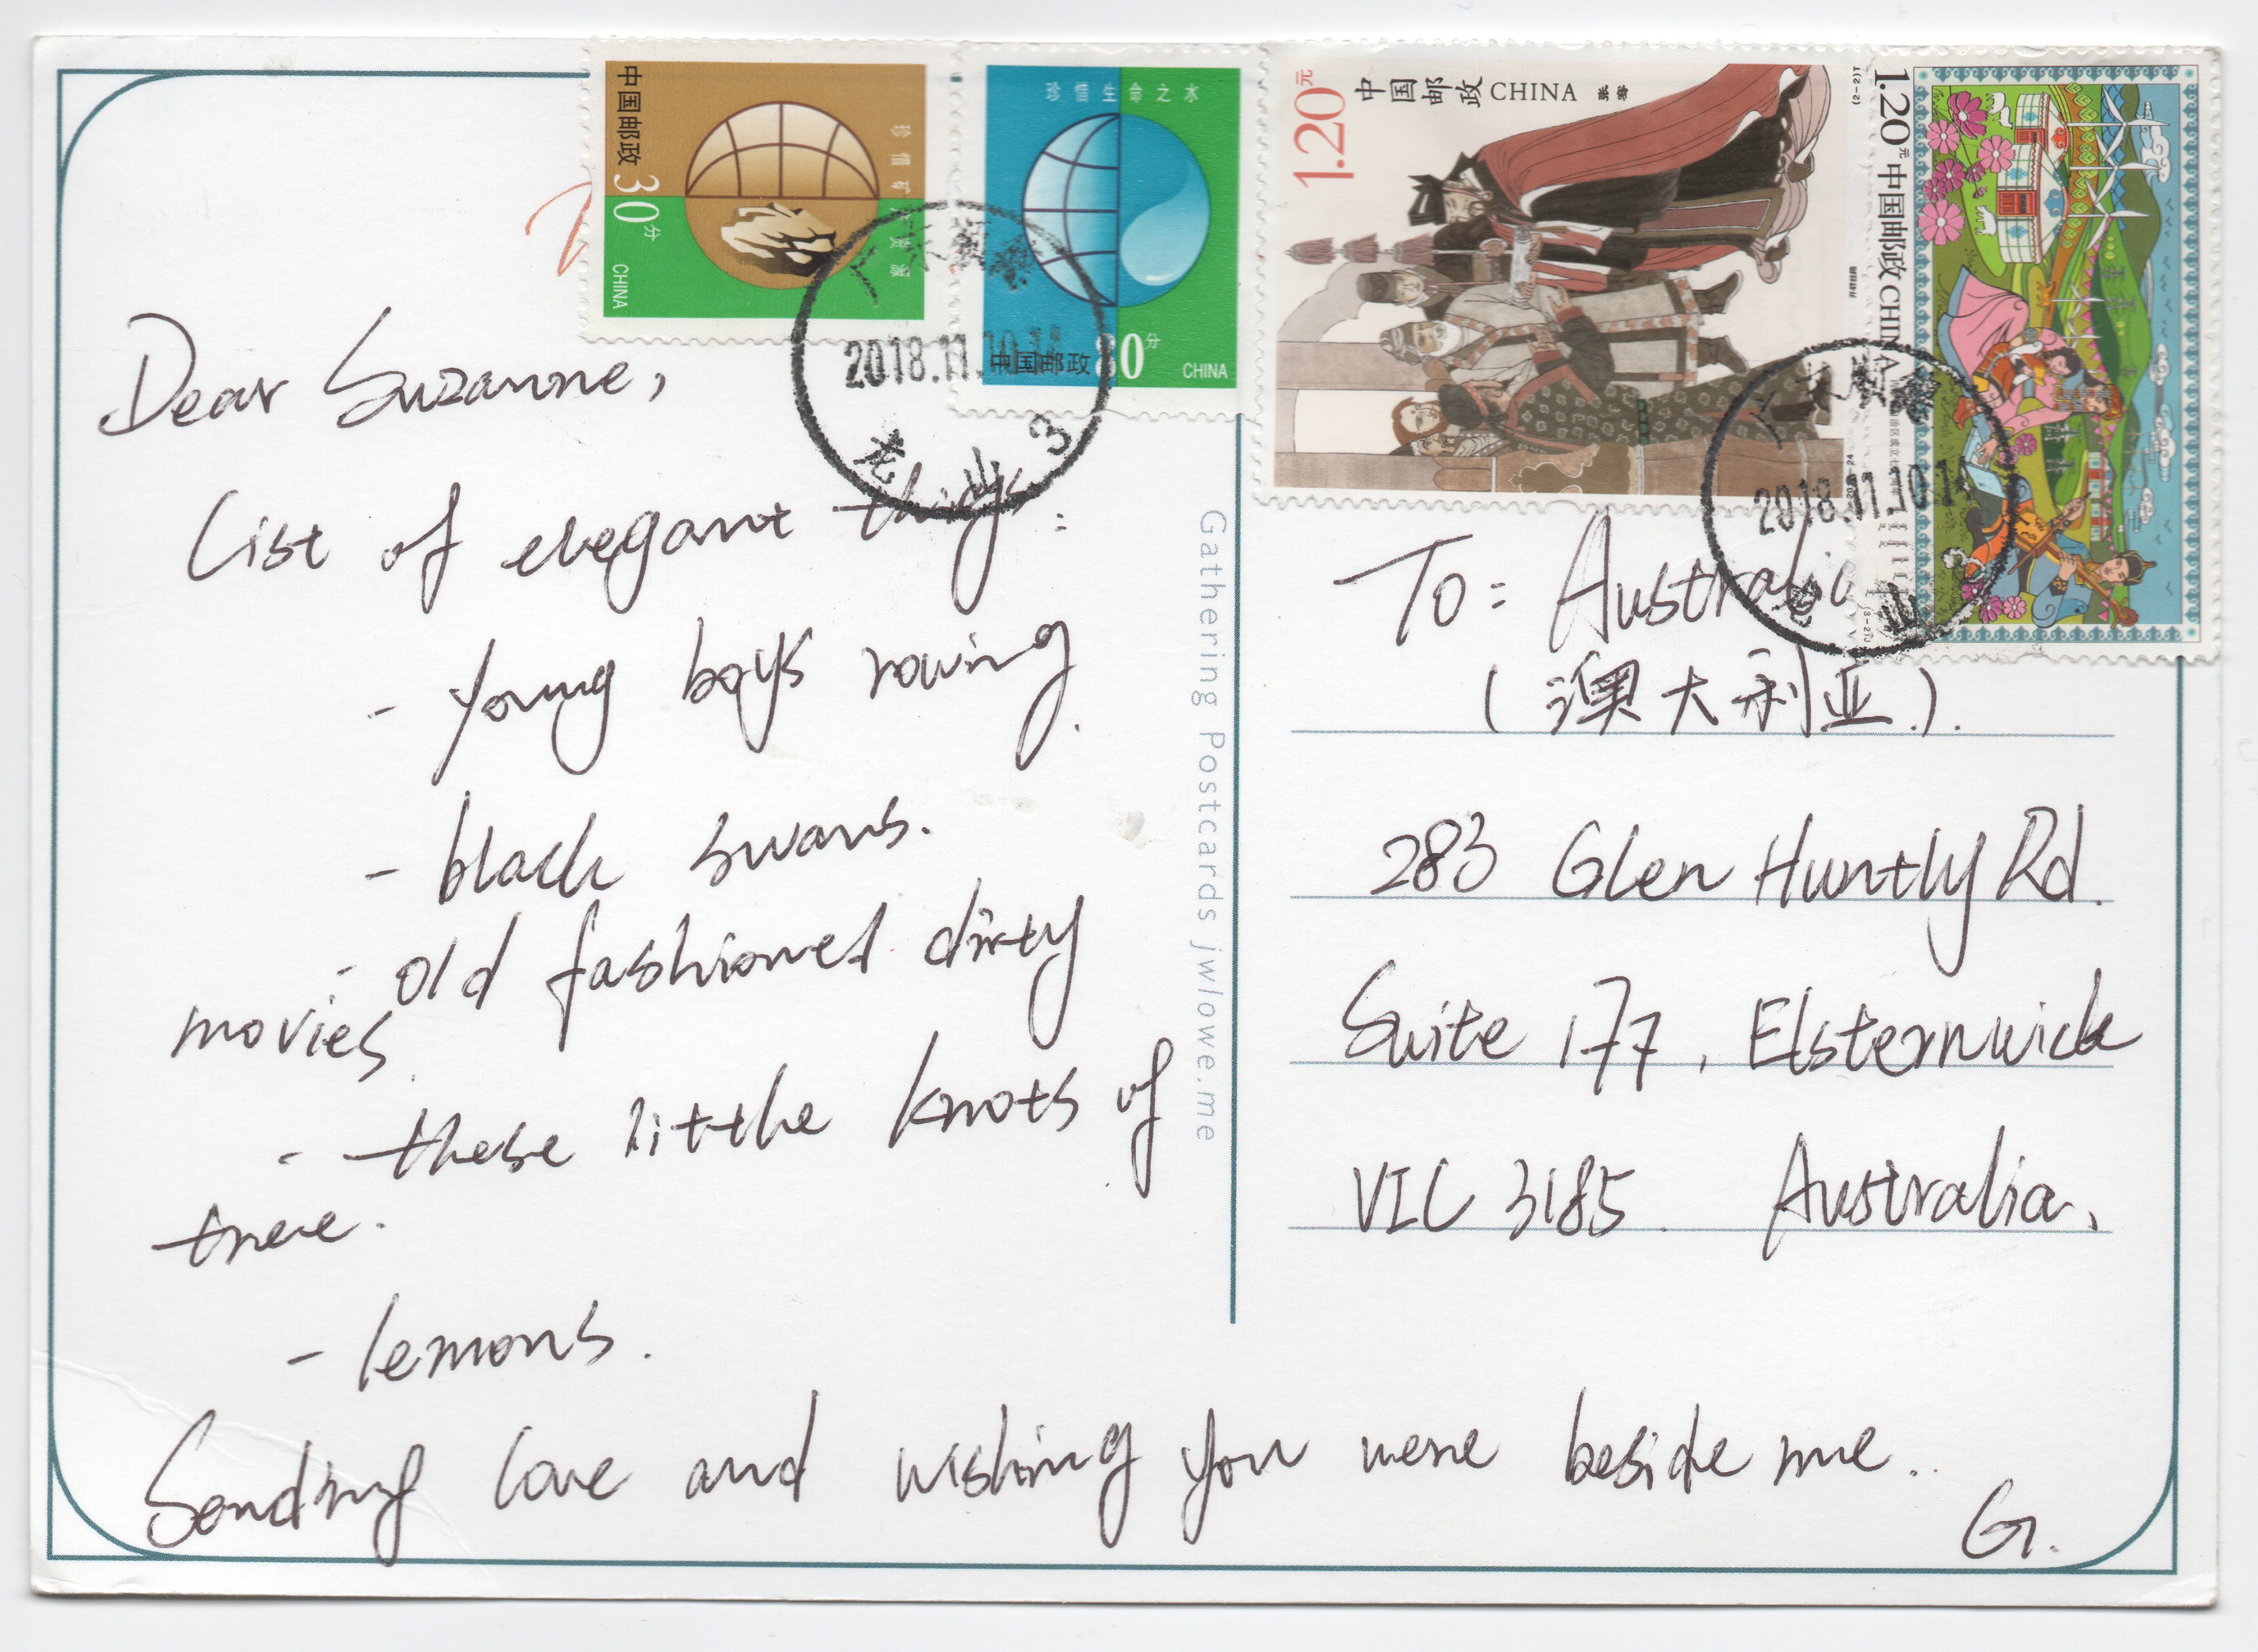 中国邮政
30分
CHINA
珍惜矿产资源
珍惜生命之水
中国邮政 80分
CHINA
1.20元
中国邮政 CHINA
张骞
1.20元 中国邮政 CHINA
2018.11.10
3
2018.11.10
Dear Suzanne,
List of elegant things:
- young boys rowing.
- black swans.
- old fashioned dirty
movies.
- these little knots of
tree.
- lemons.
Sending love and wishing you were beside me.
G.
Gathering Postcards jwlowe.me
To: Australia
(澳大利亚).
283 Glen Huntly Rd.
Suite 177, Elsternwick
VIC 3185. Australia.